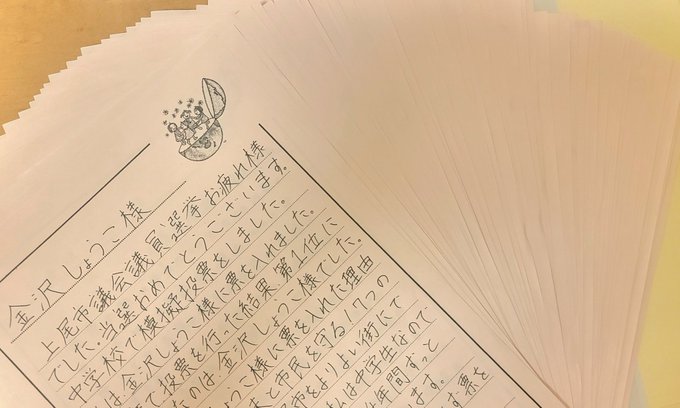 金沢しょうこ様
上尾市議会議員選挙お疲れ様
でした。当選おめでとうございます。
中学校で模擬投票をしました。
は金沢しょうこ様に票を入れました。
て投票を行った結果、第1位に
たのは金沢しょうこ様でした。
ょうこ様に票を入れた理由
と市民を守る17つの
市をよりよい街にで
んは中学生なので
年間ずっと
ます。
す票を